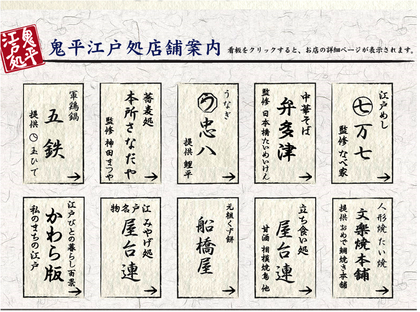 鬼平
江戸処
鬼平江戸処店舗案内
看板をクリックすると、お店の詳細ページが表示されます。
江戸めし
七 万七
監修 なべ家
中華そば
弁多津
監修 日本橋たいめいけん
うなぎ
う 忠八
提供 鯉平
蕎麦処
本所さなだや
監修 神田まつや
軍鶏鍋
五鉄
提供 玉ひで
人形焼 たい焼
文楽焼本舗
提供 おめで鯛焼き本舗
立ち食い処
屋台連
甘酒 相模焼鳥 他
元祖くず餅
船橋屋
江戸名物
みやげ処
屋台連
江戸びとの暮らし百景
かわら版
私のまちの江戸